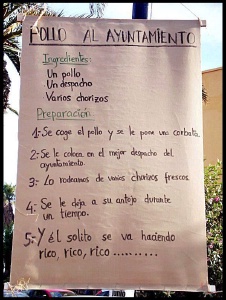 POLLO AL AYUNTAMIENTO
Ingredientes:
Un pollo
Un despacho
Varios chorizos
Preparación
1.- Se coge el pollo y se le pone una corbata.
2.- Se le coloca en el mejor despacho del
ayuntamiento.
3.- Lo rodeamos de varios chorizos frescos.
4.- Se le deja a su antojo durante
un tiempo.
5.- Y él solito se va haciendo
rico, rico, rico ..........